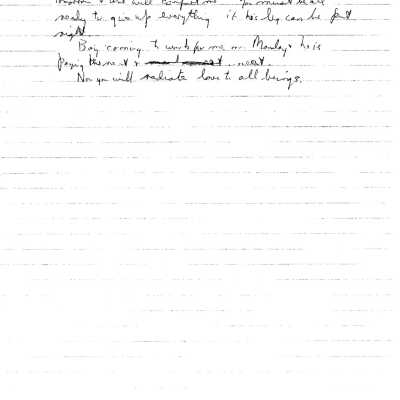 ready to give up everything if his leg can be put
right.
Boy coming to work for me on Monday & he is
paying the rent &
Now you will radiate love to all beings.